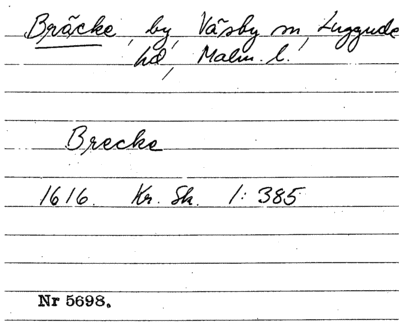 Bräcke, by, Väsby sn, Luggude
hd, Malm. l.
Brecke
1616. Kr. Sk. 1: 385
Nr 5698.